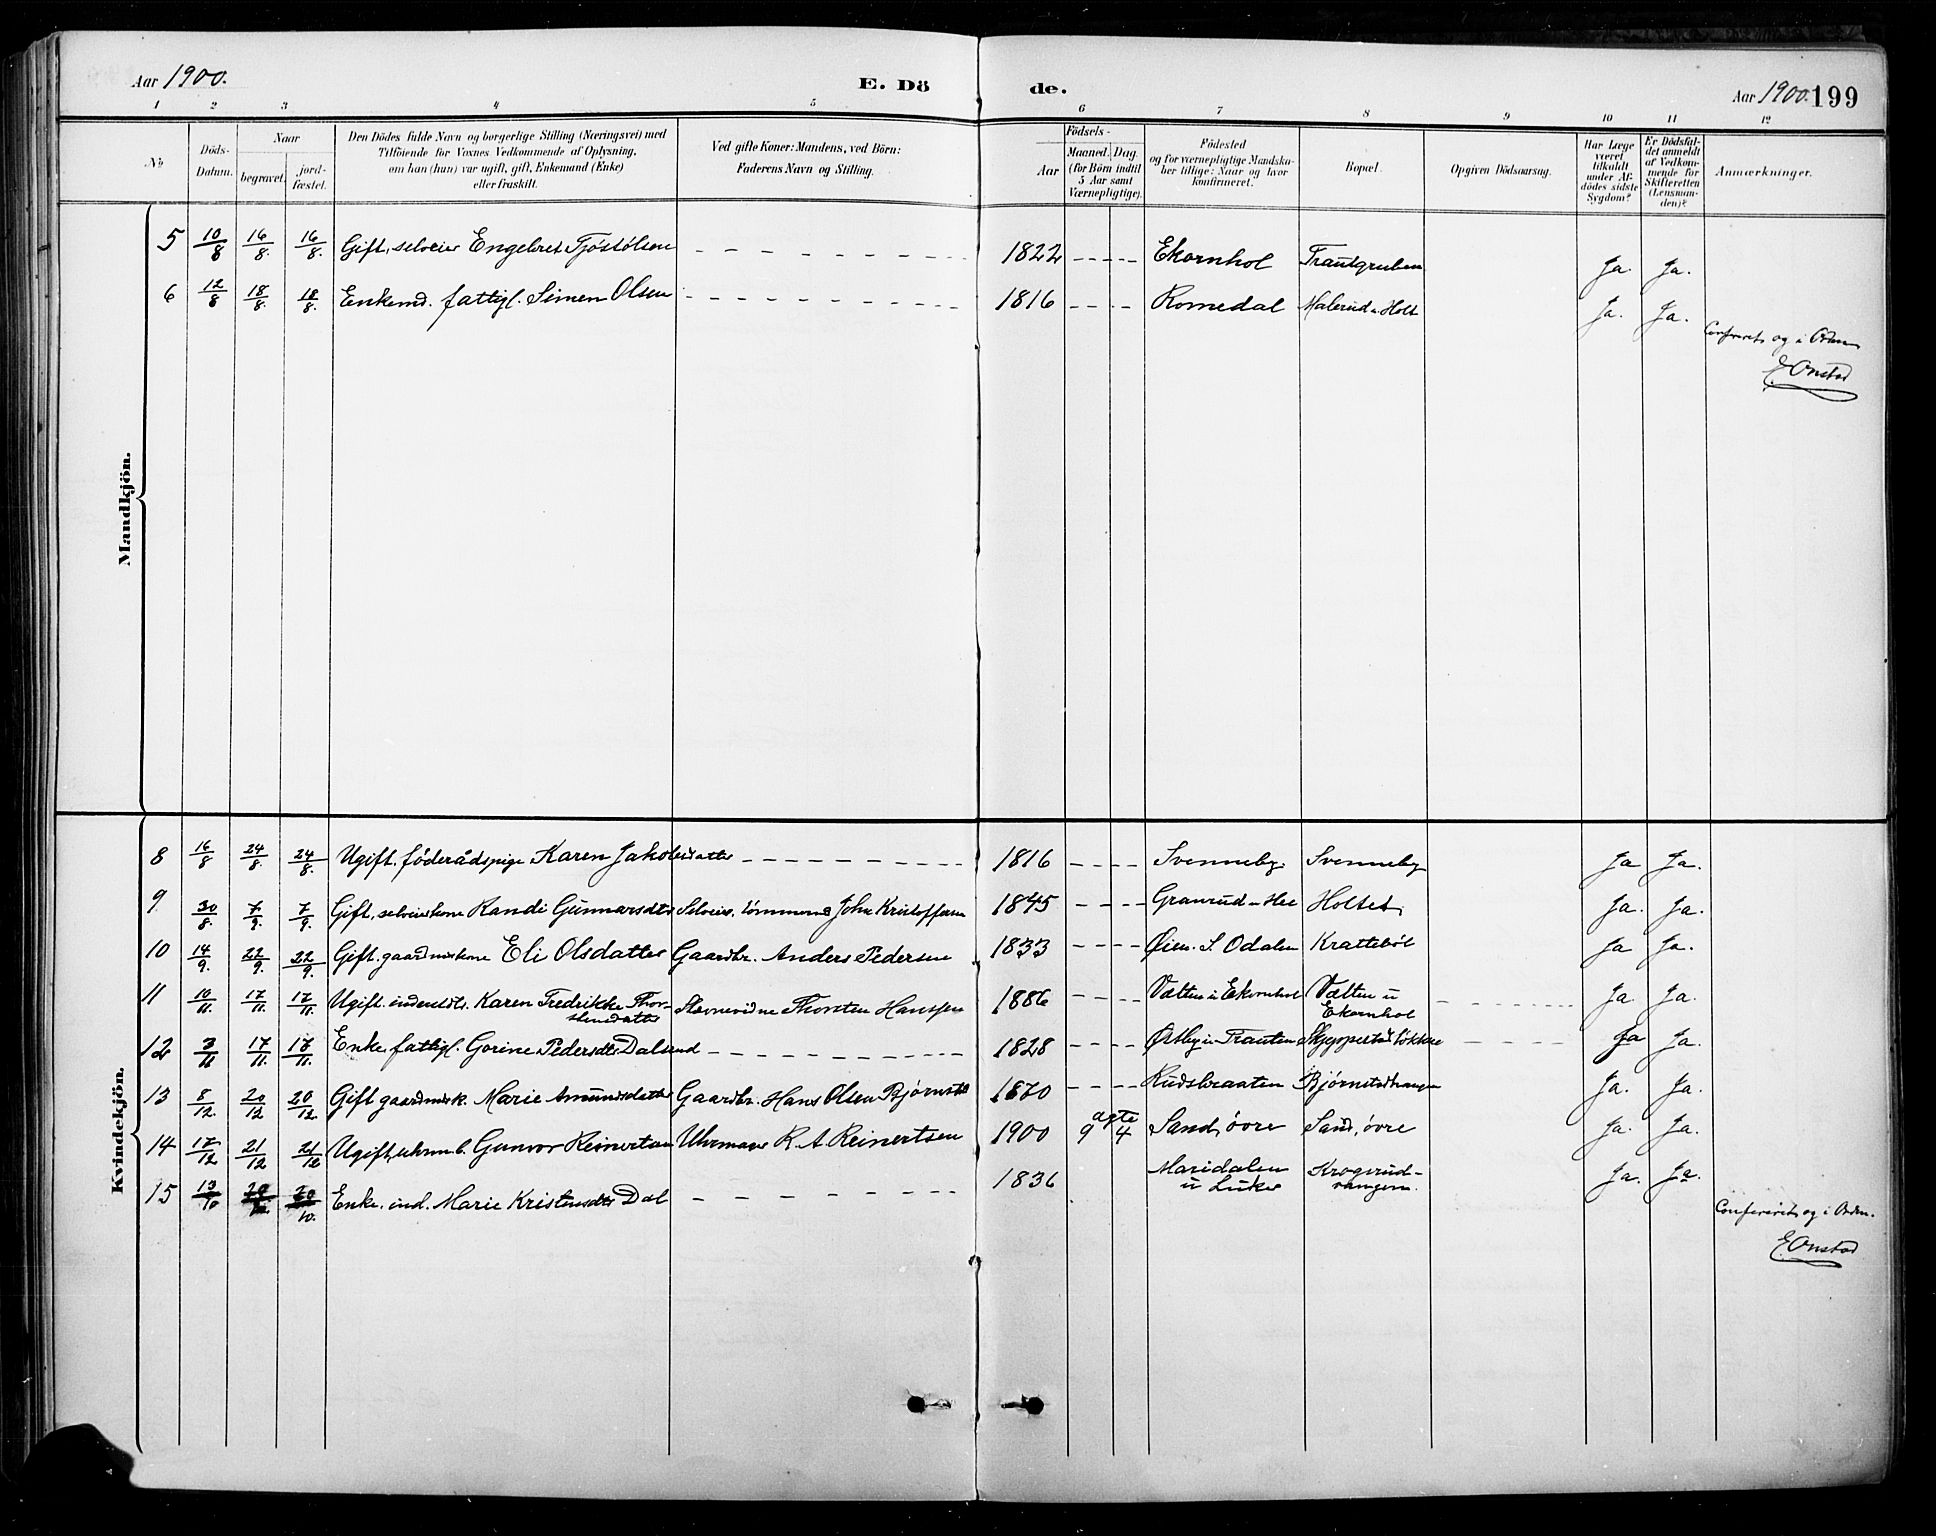 Aar 1900. E. Dö de. Aar 1900. 199
1 2 3 4 5 6 7 8 9 10 11 12
№
Döds-Datum.
Naar
begravet.
jord-fæstet.
Den Dödes fulde Navn og borgerlige Stilling (Næringsvei) med
Tilföiende for Voxnes Vedkommende af Oplysning,
om han (hun) var ugift, gift, Enkemand (Enke)
eller fraskilt.
Ved gifte Koner: Mandens, ved Börn:
Faderens Navn og Stilling.
Födsels-
Aar
Maaned. Dag.
(for Börn indtil
5 Aar samt
Værnepligtige).
Födested
og for værnepligtige Mandska-
ber tillige: Naar og hvor
konfirmeret.
Bopæl.
Opgiven Dödsaarsag.
Har Læge
været
tilkaldt
under Af-
dödes sidste
Sygdom?
Er Dödsfal-
det anmeldt
af Vedkom-
mende for
Skifteretten
(Lensman-
den)?
Anmærkninger.
Mandkjön.
5 10/8 16/8. 16/8. Gift, selveier Engebret Tjøstølsen 1822 Ekornhol Trautgruben Ja. Ja.
6 12/8 18/8. 18/8. Enkemd. fattigl. Simen Olsen 1816 Romedal Malerud u. Holt Ja. Ja.
Confereret og i Orden
E. Onstad
Kvindekjön.
8 16/8 24/8. 24/8. Ugift, föderådspige Karen Jakobsdatter 1816 Svenneby Svenneby Ja Ja.
9 30/8. 7/9. 7/9. Gift, selveierkone Randi Gunnarsdtr Selveier, tømmerm John Kristoffersen 1845 Granrud Holtet Ja. Ja.
10 14/9. 22/9. 22/9. Gift. gaardmkone Eli Olsdatter Gaardbr. Anders Pedersen 1833 Øien. S. Odalen Krattebøl Ja Ja.
11 10/11. 17/11. 17/11. Ugift. Karen Fredrikke Thor-
stensdatter Thorsten Hanssen 1886 Vælten u Ekornhol Vælten u
Ekornhol Ja. Ja.
12 3/11 17/11. 17/11. Enke, fattigl. Gorine Pedersdtr. Dalsrud 1828 Østby i Trauten Ja Ja.
13 8/12 20/12 20/12 Gift gaardmsk. Marie Amundsdatter Gaardbr. Hans Olsen Bjørnst 1870 Rudsbraaten Bjørnstadvangen Ja. Ja.
14 17/12 21/12 21/12 Ugift, uhrm b. Gunvor Reinertsen Uhrmager R. A. Reinertsen 1900 ægte 9/4 Sand, øvre Sand, øvre Ja. Ja.
15 13/10 20/10. 20/10. Enke, ind. Marie Kristensdtr Dal 1836 Maridalen
u Luker Krogsrud-
vangen. Ja. Ja.
Confereret og i Orden.
E. Onstad